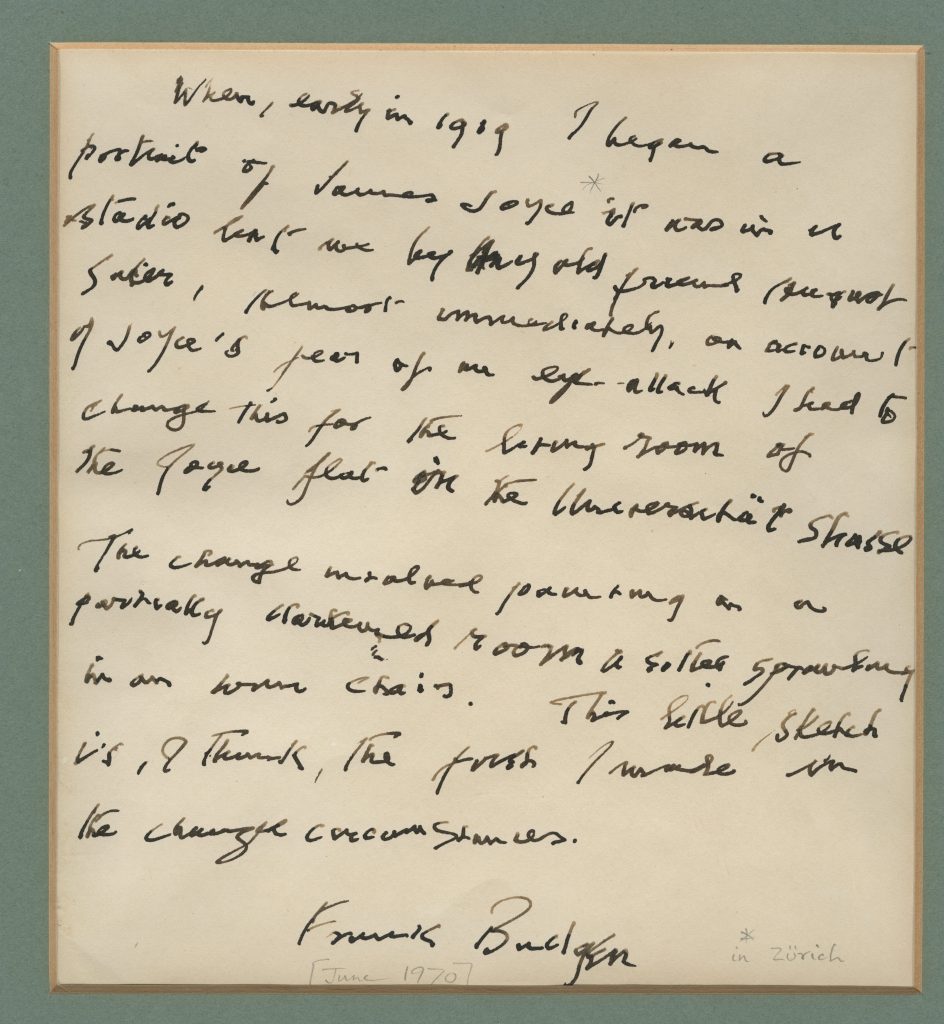 When, early in 1919 I began a
portrait of James Joyce * it was in a
studio lent me by my old friend August
Suter, Almost immediately, on account
of Joyce's fear of an eye-attack I had to
change this for the living room of
the Joyce flat in the Universität Strasse
The change involved painting in a
partially darkened room a sitter sprawling
in an arm chair. This little sketch
is, I think, the first I made in
the changed circumstances.
Frank Budgen
[June 1970]
* in Zürich